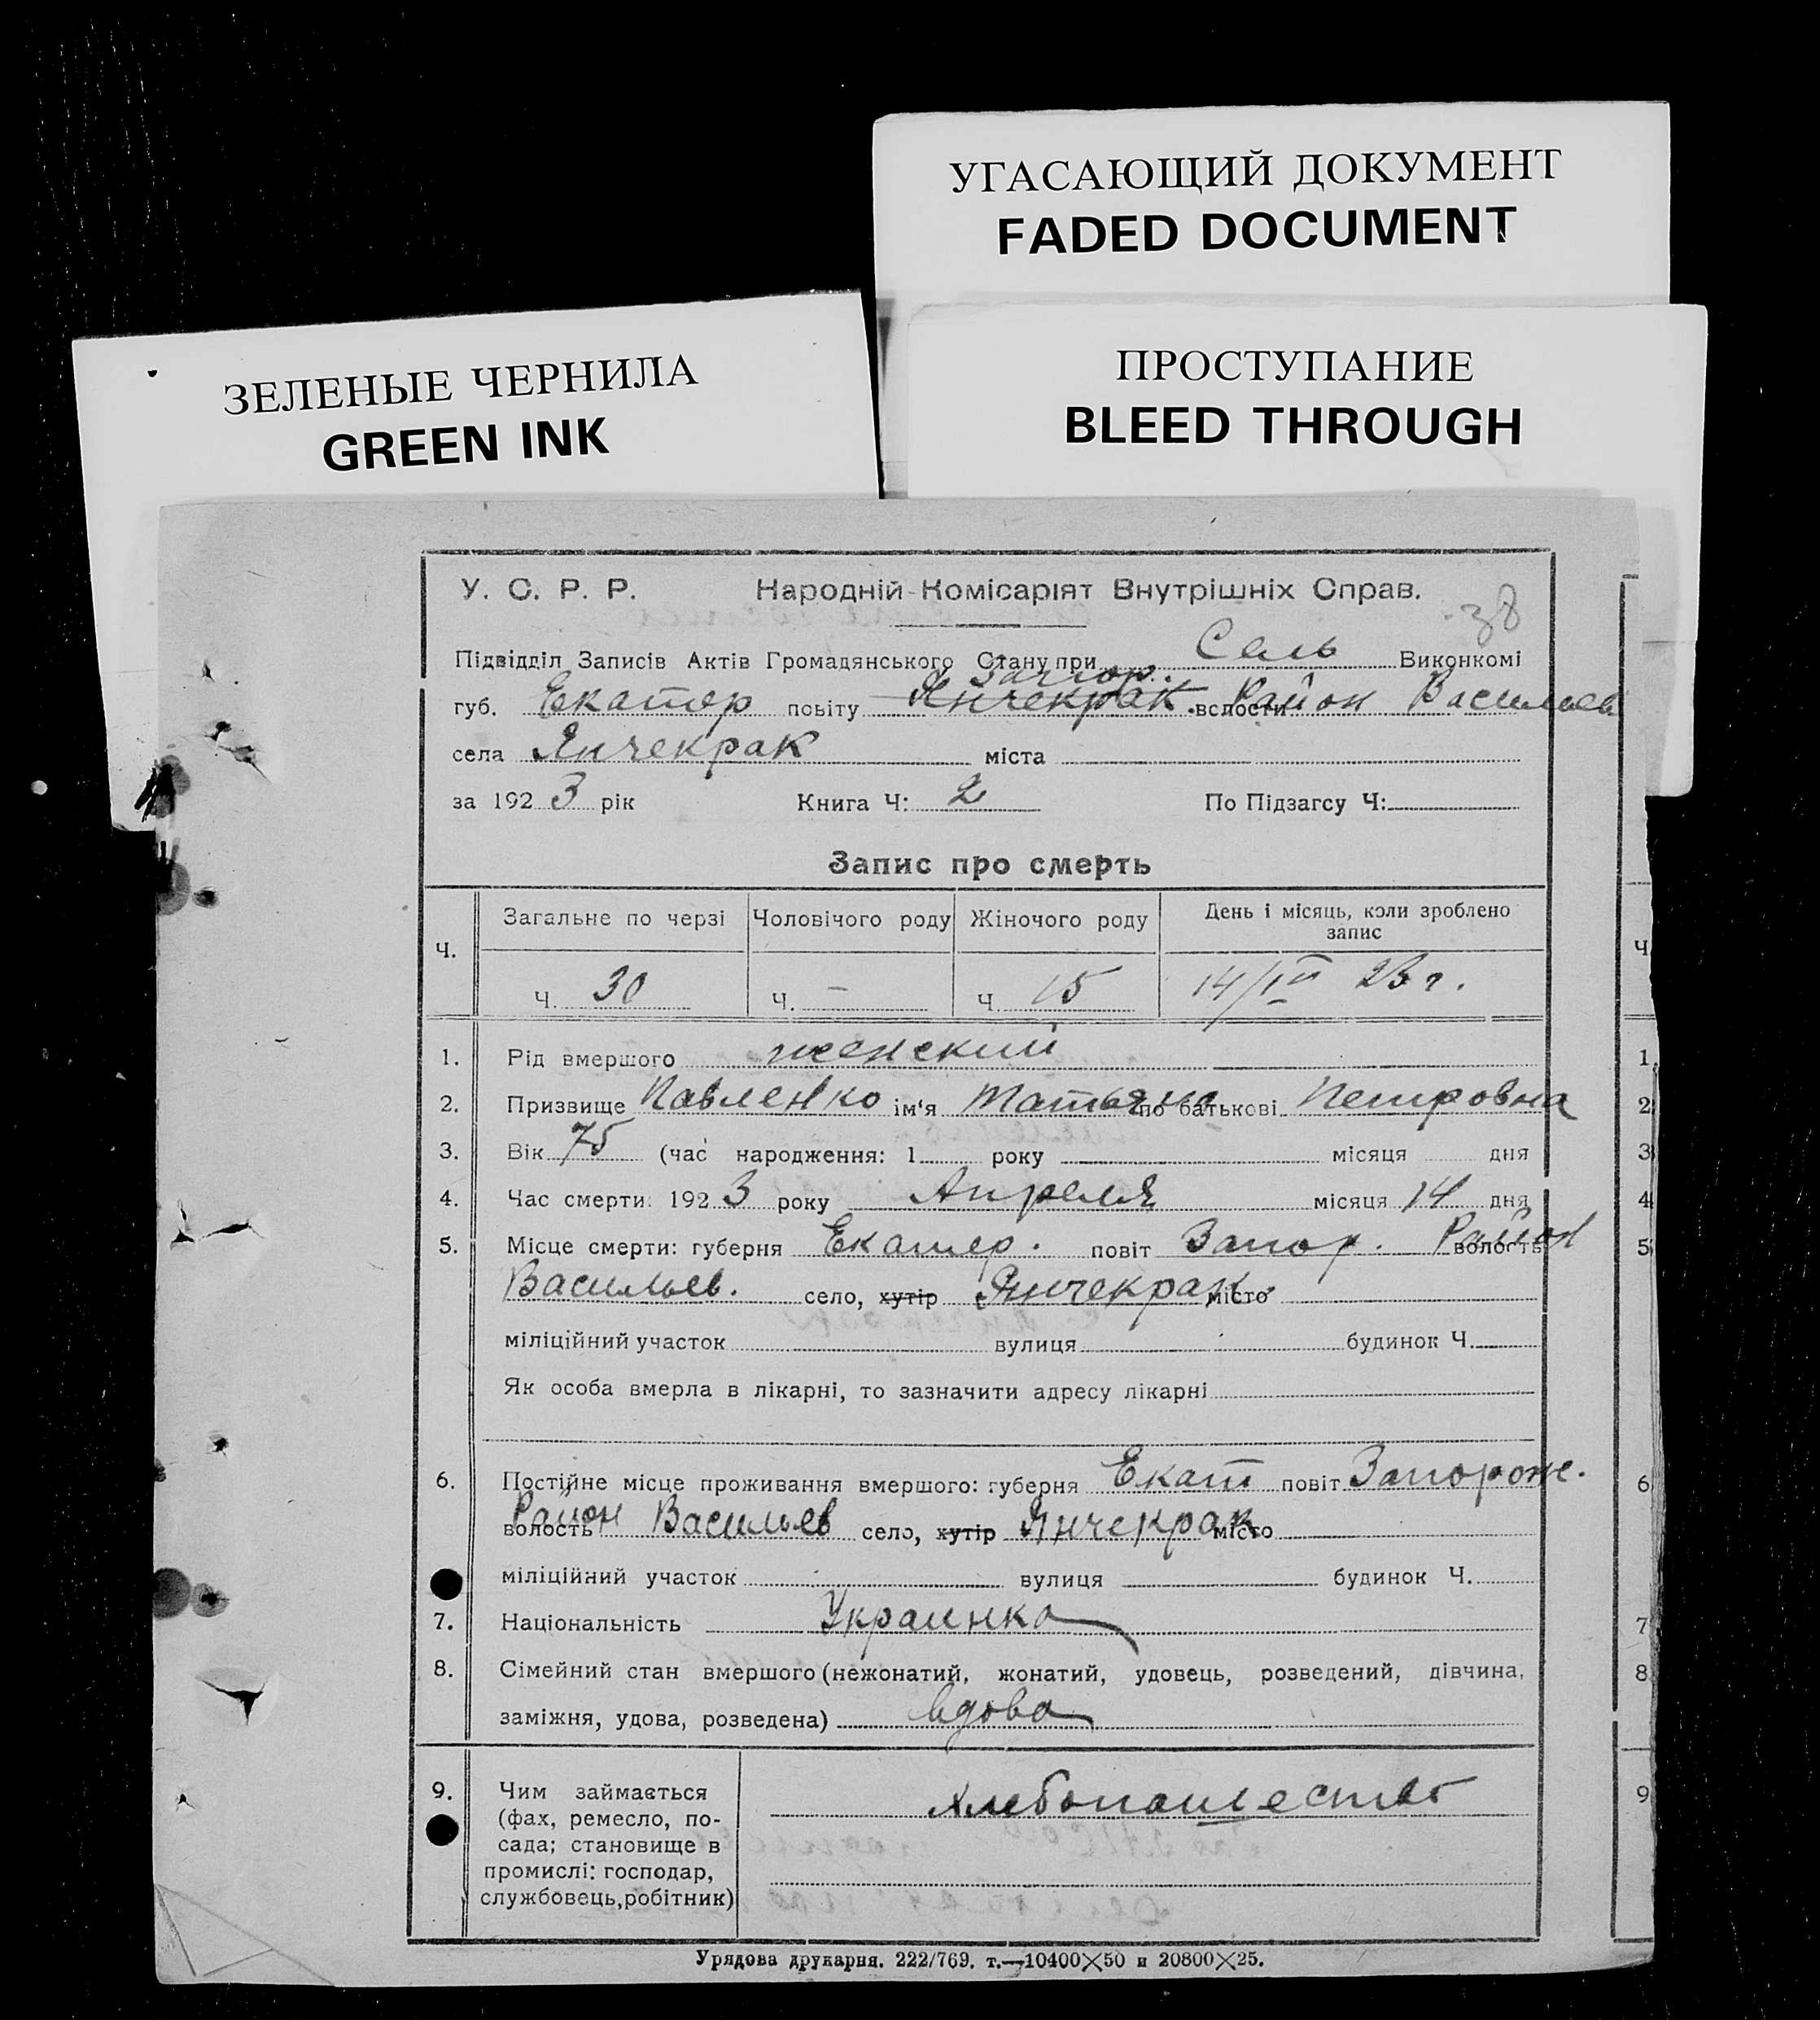 УГАСАЮЩИЙ ДОКУМЕНТ
FADED DOCUMENT
ЗЕЛЕНЫЕ ЧЕРНИЛА
GREEN INK
ПРОСТУПАНИЕ
BLEED THROUGH
У. С. Р. Р. Народній Комісаріят Внутрішніх Справ.
38
Підвідділ Записів Актів Громадянського Стану при Сель Виконкомі
Запор.
губ. Екатер повіту Янчекрак волости Район Васильев
села Янчекрак міста
за 1923 рік Книга Ч: 2 По Підзагсу Ч:
Запис про смерть
Ч. Загальне по черзі Чоловічого роду Жіночого роду День і місяць, коли зроблено запис
Ч. 30 Ч. – Ч 15 14/IV 23 г.
1. Рід вмершого женский
2. Призвище Павленко ім'я Татьяна по батькові Петровна
3. Вік 75 (час народження: 1 року місяця дня
4. Час смерти: 1923 року Апреля місяця 14 дня
5. Місце смерти: губерня Екатер. повіт Запор. волость Район
Васильев. село, хутір Янчекрак. місто
міліційний участок вулиця будинок Ч.
Як особа вмерла в лікарні, то зазначити адресу лікарні
6. Постійне місце проживання вмершого: губерня Екат повіт Запорож.
волость Район Васильев село, хутір Янчекрак місто
міліційний участок вулиця будинок Ч.
7. Національність Украинка
8. Сімейний стан вмершого (нежонатий, жонатий, удовець, розведений, дівчина,
заміжня, удова, розведена) вдова
9. Чим займається хлебопашеств
(фах, ремесло, по-
сада; становище в
промислі: господар,
службовець, робітник)
Урядова друкарня. 222/769. т.—10400×50 и 20800×25.
Ч
1.
2
3
4
5
6
7
8
9